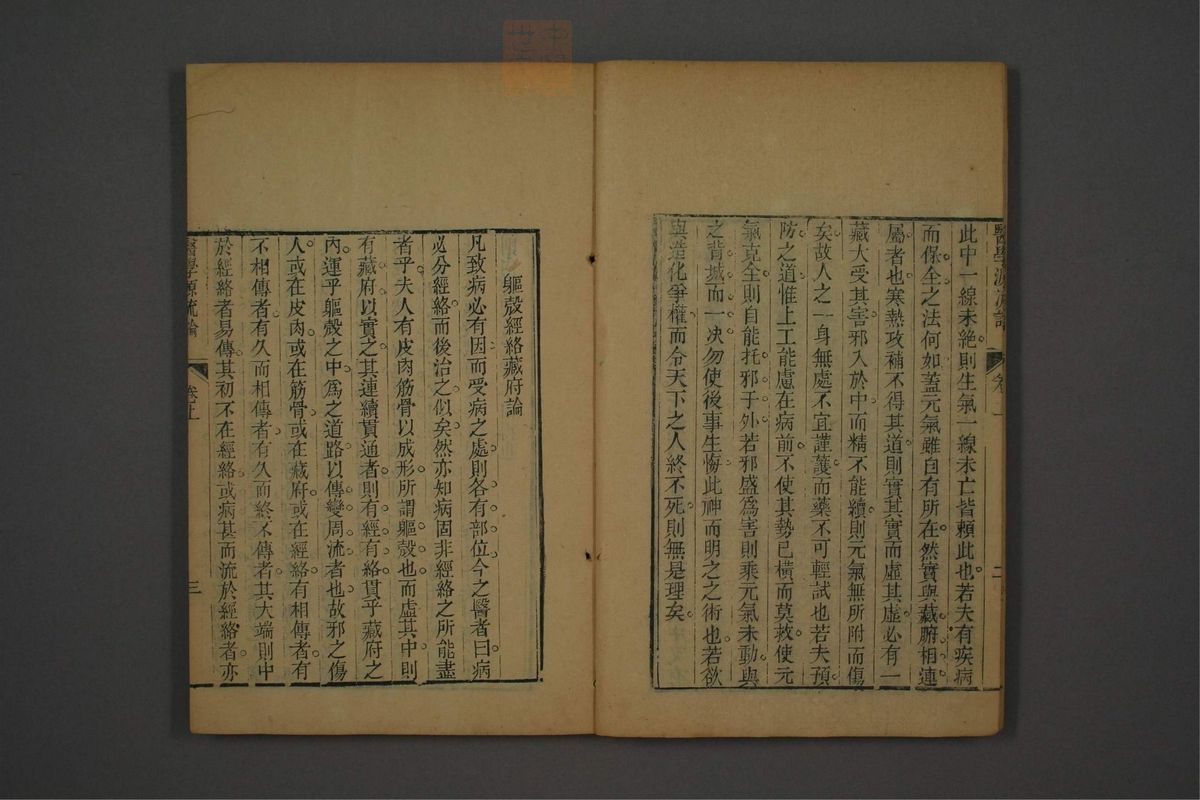 醫學源流論 卷上 二
此中一線未絕則生氣一線未亡皆賴此也若夫有疾病
而保全之法何如蓋元氣雖自有所在然實與藏腑相連
屬者也寒熱攻補不得其道則實其實而虛其虛必有一
藏大受其害邪入於中而精不能續則元氣無所附而傷
矣故人之一身無處不宜謹護而藥不可輕試也若夫預
防之道惟上工能慮在病前不使其勢已橫而莫救使元
氣克全則自能托邪于外若邪盛為害則乘元氣未動與
之背城而一决勿使後事生悔此神而明之之術也若欲
與造化爭權而令天下之人終不死則無是理矣
軀殼經絡藏府論
凡致病必有因而受病之處則各有部位今之醫者曰病
必分經絡而後治之似矣然亦知病固非經絡之所能盡
者乎夫人有皮肉筋骨以成形所謂軀殼也而虛其中則
有藏府以實之其連續貫通者則有經有絡貫乎藏府之
內運乎軀殼之中為之道路以傳變周流者也故邪之傷
人或在皮肉或在筋骨或在藏府或在經絡有相傳者有
不相傳者有久而相傳者有久而終不傳者其大端則中
於經絡者易傳其初不在經絡或病甚而流於經絡者亦
醫學源流論 卷上 三